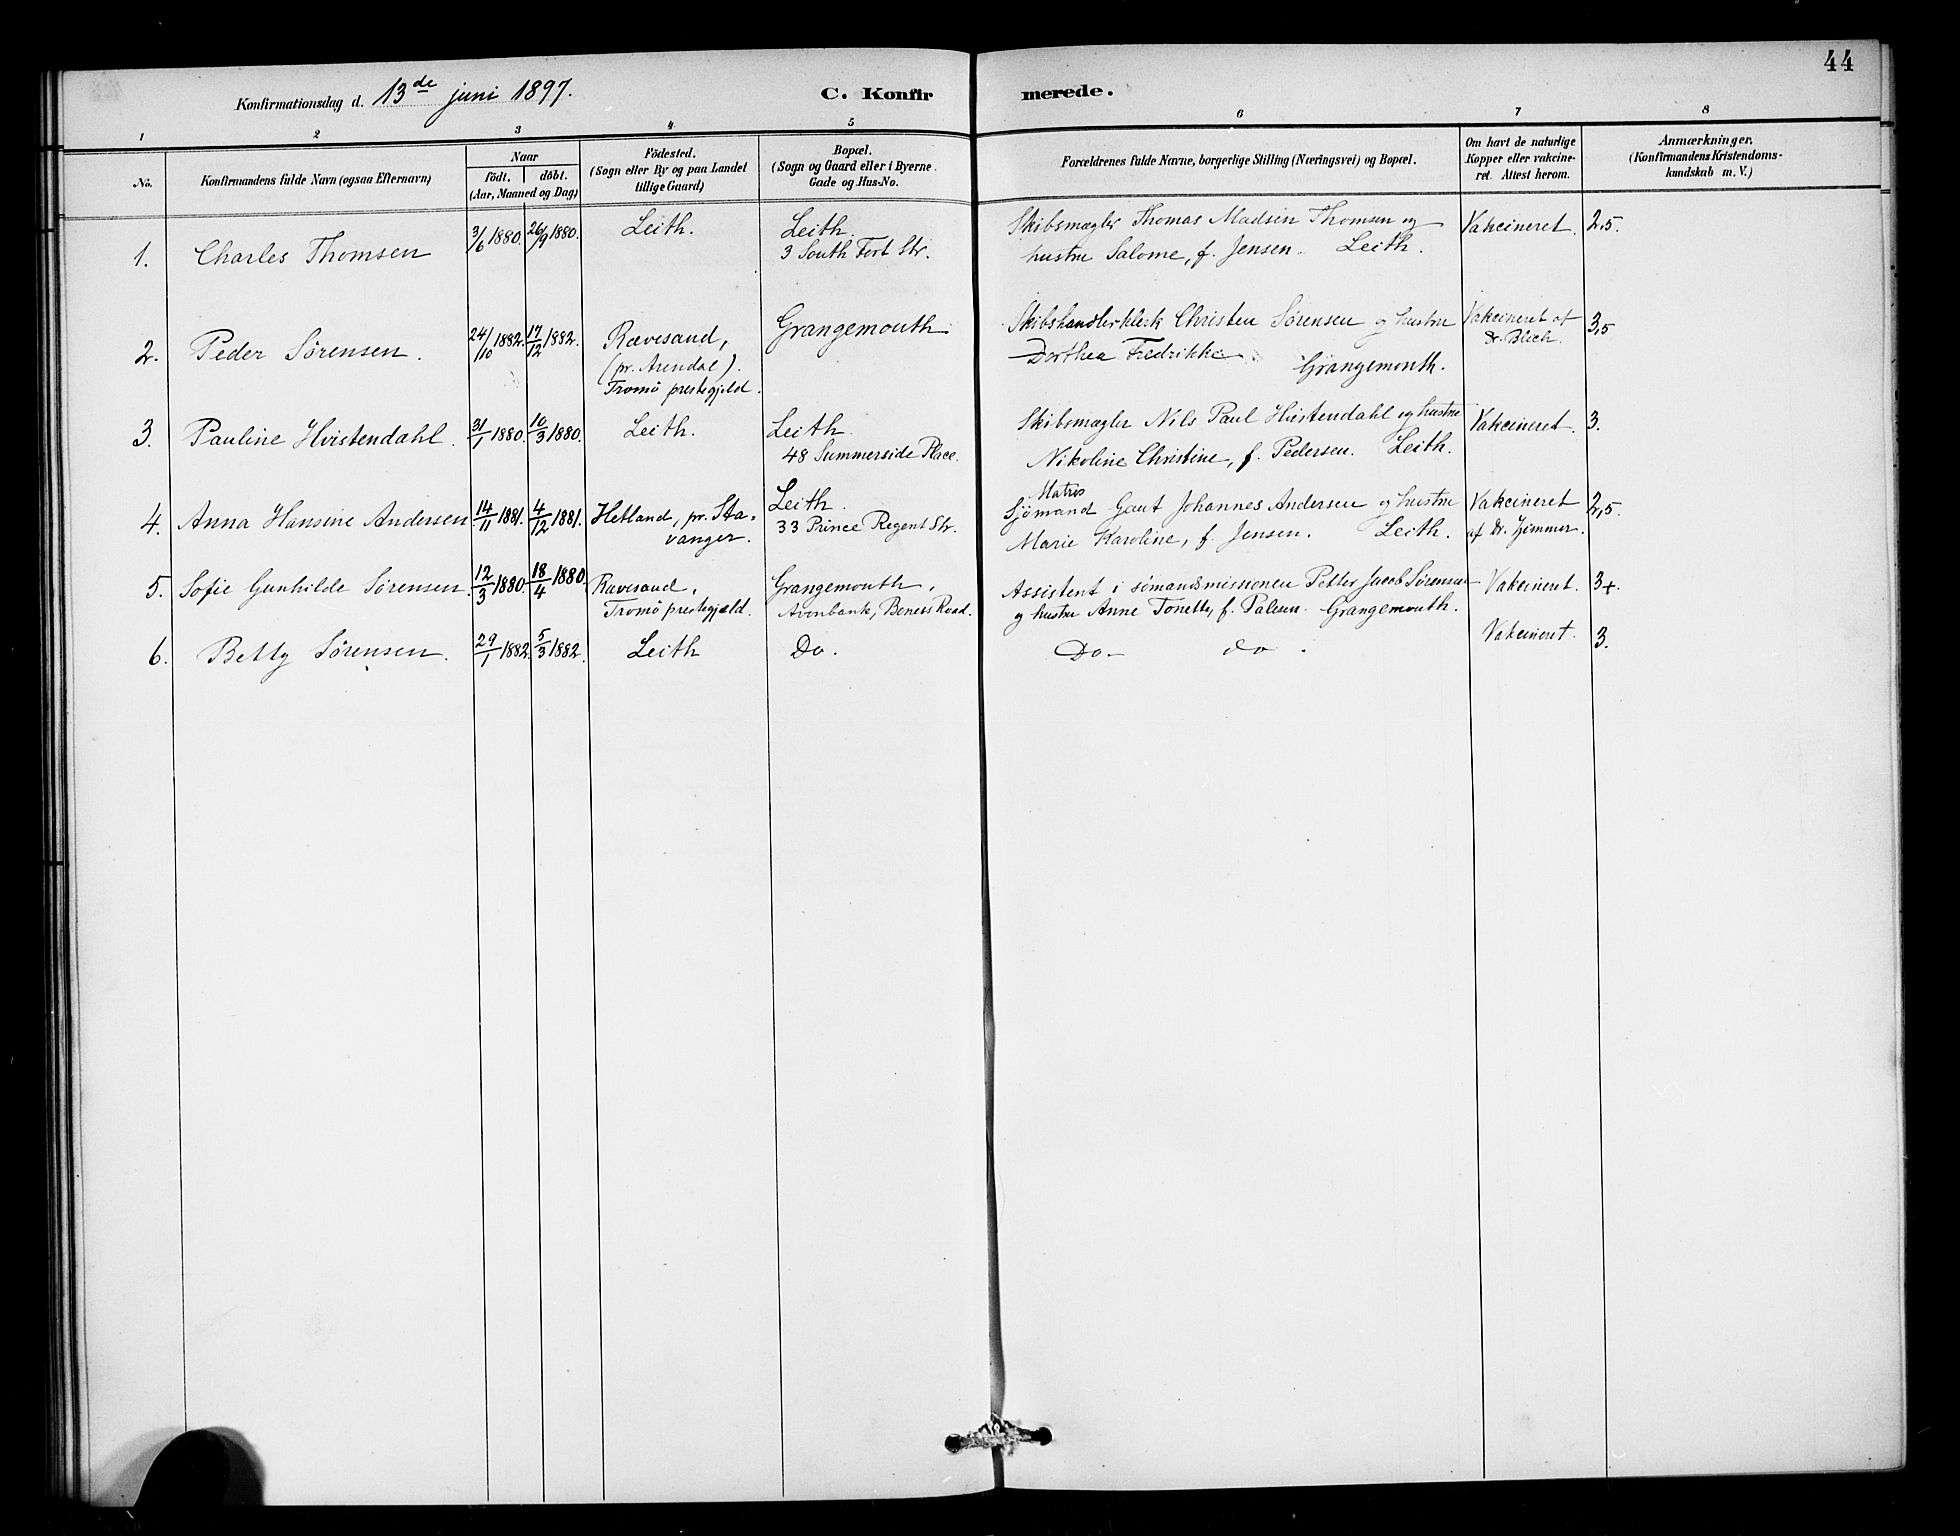 44
Konfirmationsdag d. 13de juni 1897. C. Konfir merede.
1 2 3 4 5 6 7 8
No. Konfirmandens fulde Navn (ogsaa Efternavn)
Naar
födt. döbt.
(Aar, Maaned og Dag)
Födested.
(Sogn eller By og paa Landet
tillige Gaard)
Bopæl.
(Sogn og Gaard eller i Byerne
Gade og Hus-No.
Forældrenes fulde Navne, borgerlige Stilling (Næringsvei) og Bopæl.
Om havt de naturlige
Kopper eller vakcine-
ret. Attest herom.
Anmærkninger.
(Konfirmandens Kristendoms-
kundskab m. V.)
1. Charles Thomsen 3/6 1880. 26/9 1880. Leith.
Leith.
3 South Fort Str.
Skibsmægler Thomas Madsen Thomsen og
hustru Salome, f. Jensen. Leith.
Vakcineret. 2,5.
2. Peder Sörensen. 24/10 1882. 17/12 1882.
Rævesand,
(pr. Arendal).
Tromö prestegjeld.
Grangemouth
Skibshandlerklerk Christen Sörensen og hustru
Dorthea Fredrikke
Grangemouth.
Vakcineret af
Dr. Blich. 3,5
3. Pauline Hvistendahl. 31/1 1880. 10/3 1880. Leith.
Leith.
48 Summerside Place.
Skibsmægler Nils Paul Hvistendahl og hustru
Nikoline Christine, f. Pedersen. Leith.
Vakcineret. 3.
4. Anna Hansine Andersen 14/11 1881. 4/12 1881.
Hetland, pr. Sta-
vanger.
Leith.
33 Prince Regent Str.
Matros
Sjömand Gaut Johannes Andersen og hustru
Marie Karoline, f. Jensen. Leith.
Vakcineret
af Dr. Zimmer. 2,5.
5. Sofie Gunhilde Sörensen. 12/3 1880. 18/4 1880.
Rævesand,
Tromö prestegjæld.
Grangemouth,
Avonbank, Road.
Assistent i sömandsmissionen Petter Jacob Sörensen
og hustru Anne Tonette, f. Grangemouth.
Vakcineret. 3+.
6. Betty Sörensen. 29/1 1882. 5/3 1882. Leith Do.
Do - do.
Vakcineret. 3.